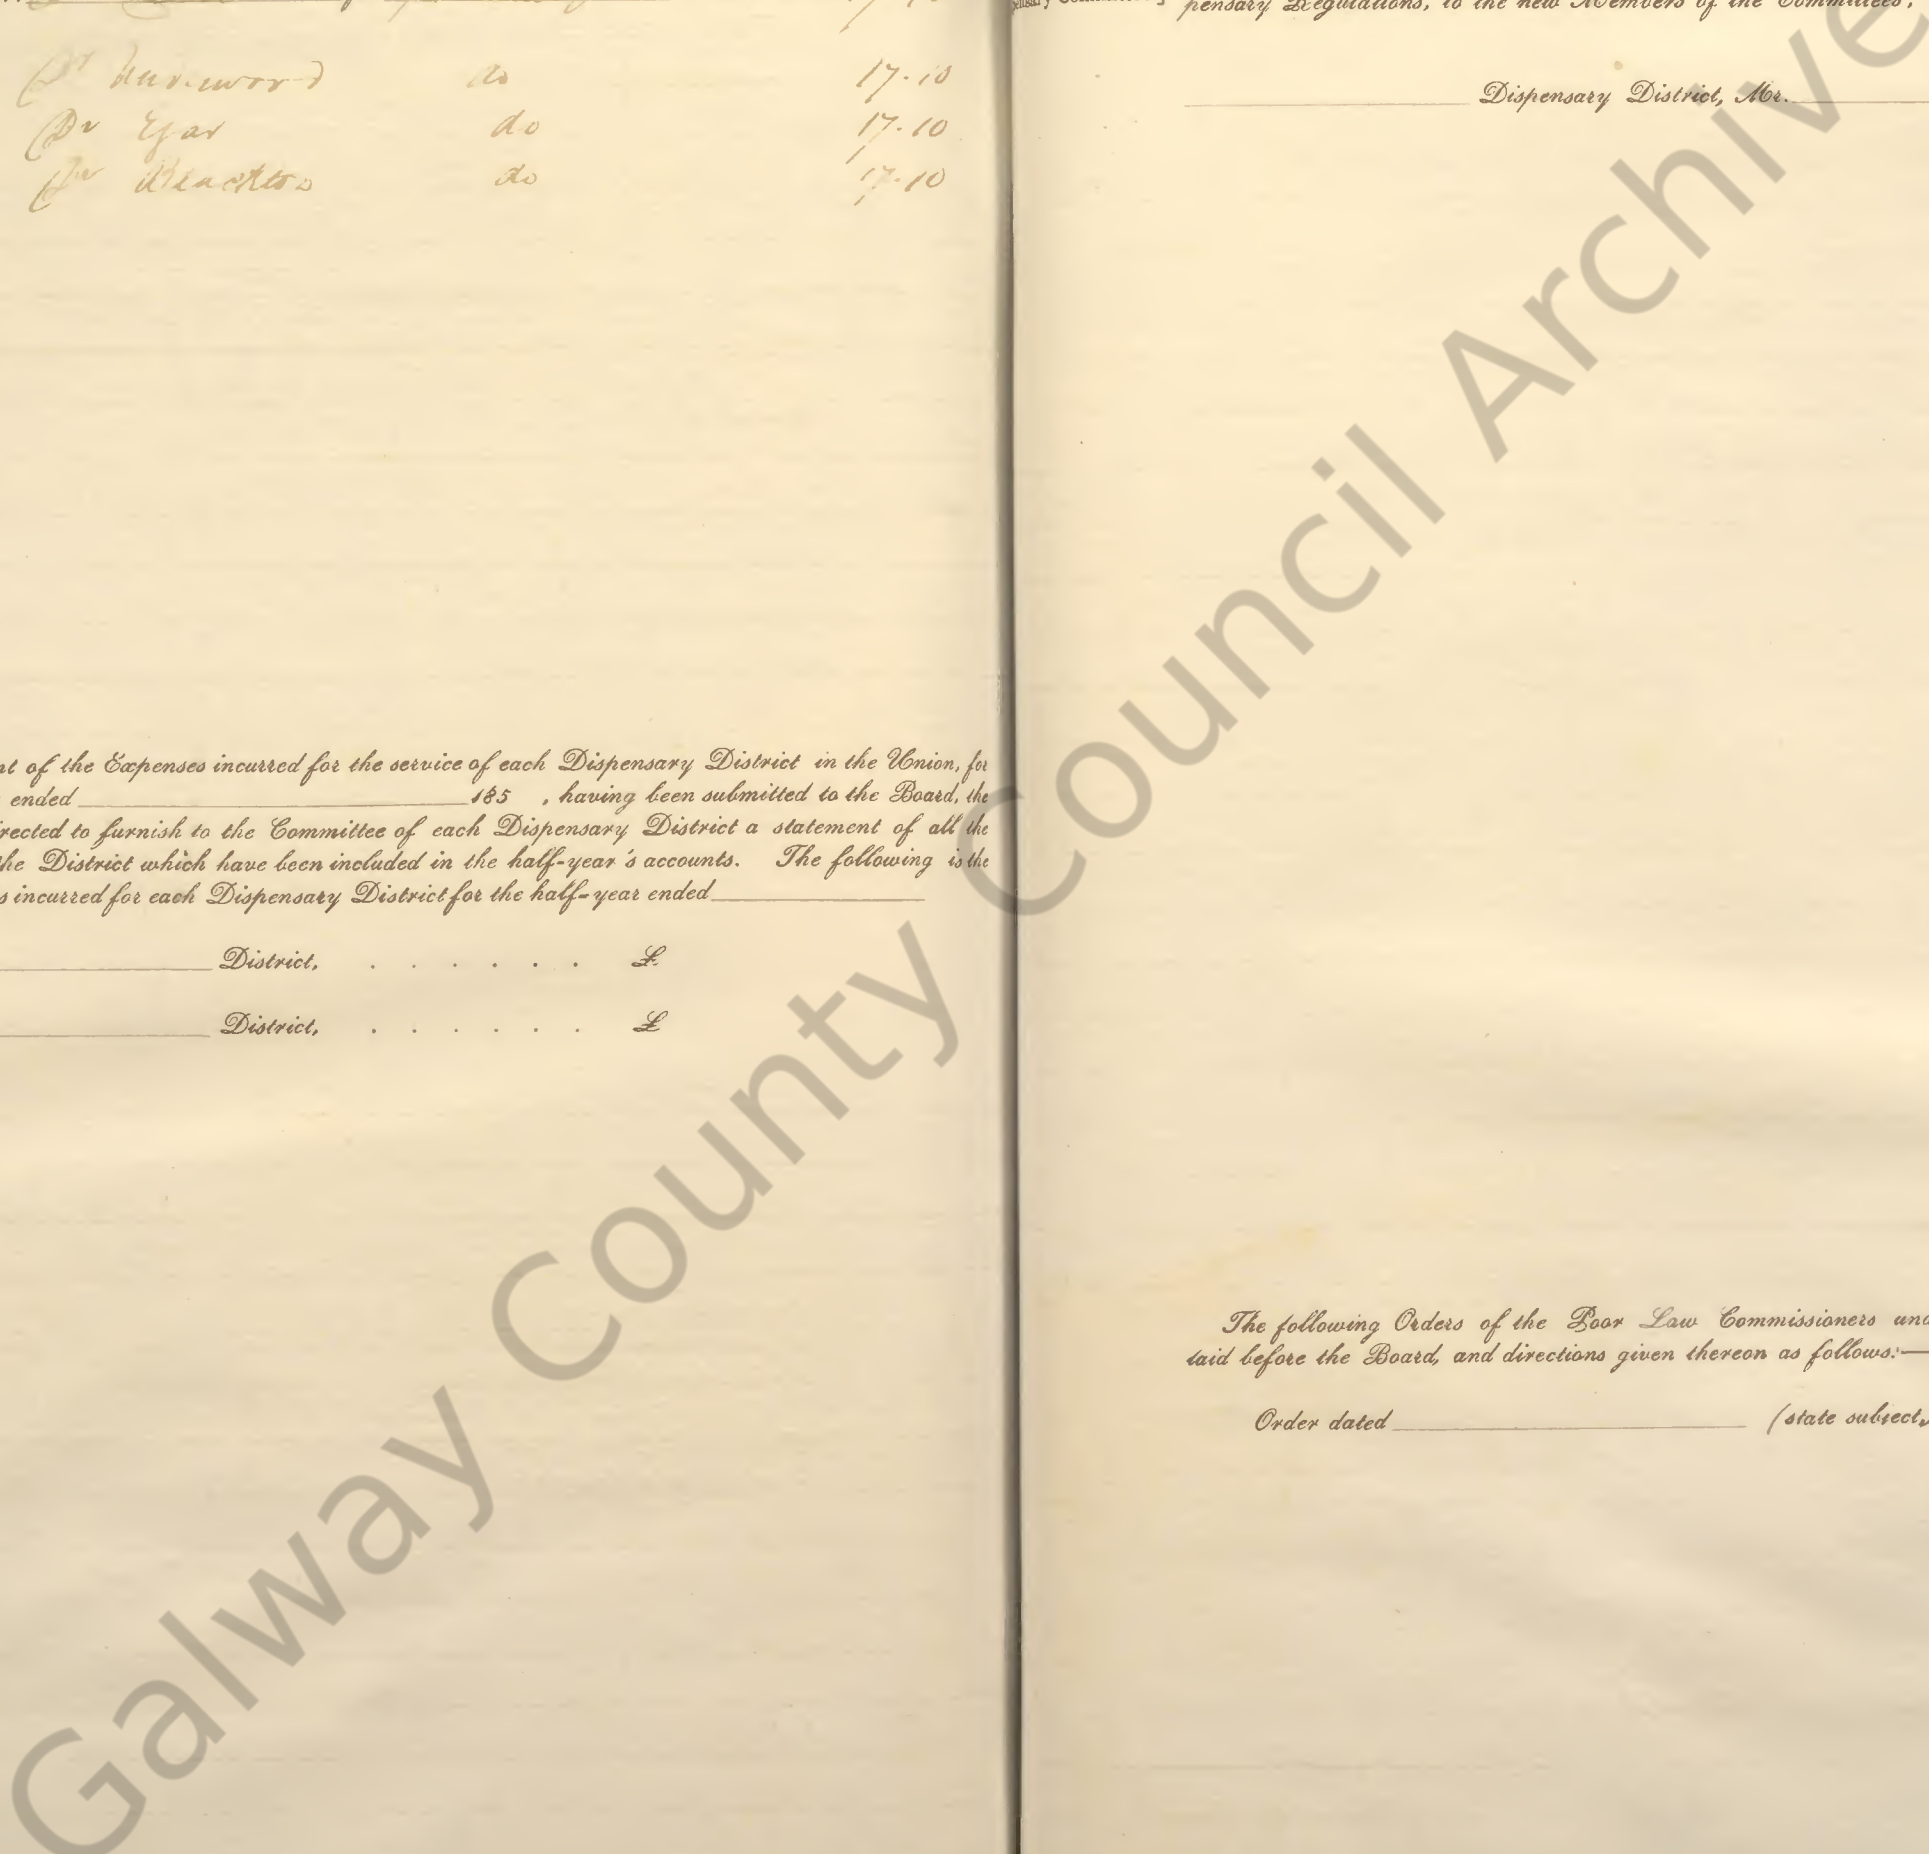 17.10
Dr do 17.10
Dr Egar do 17.10
Dr do 17.10
of the Expenses incurred for the service of each Dispensary District in the Union, for
ended 185 , having been submitted to the Board, the
rected to furnish to the Committee of each Dispensary District a statement of all the
he District which have been included in the half-year's accounts. The following is the
s incurred for each Dispensary District for the half-year ended
District, . . . . . . £
District, . . . . . . £
pensary Regulations, to the new Members of the Committees,
Dispensary District, Mr.
The following Orders of the Poor Law Commissioners and
laid before the Board, and directions given thereon as follows:—
Order dated (state subject,
Galway County Council Archive